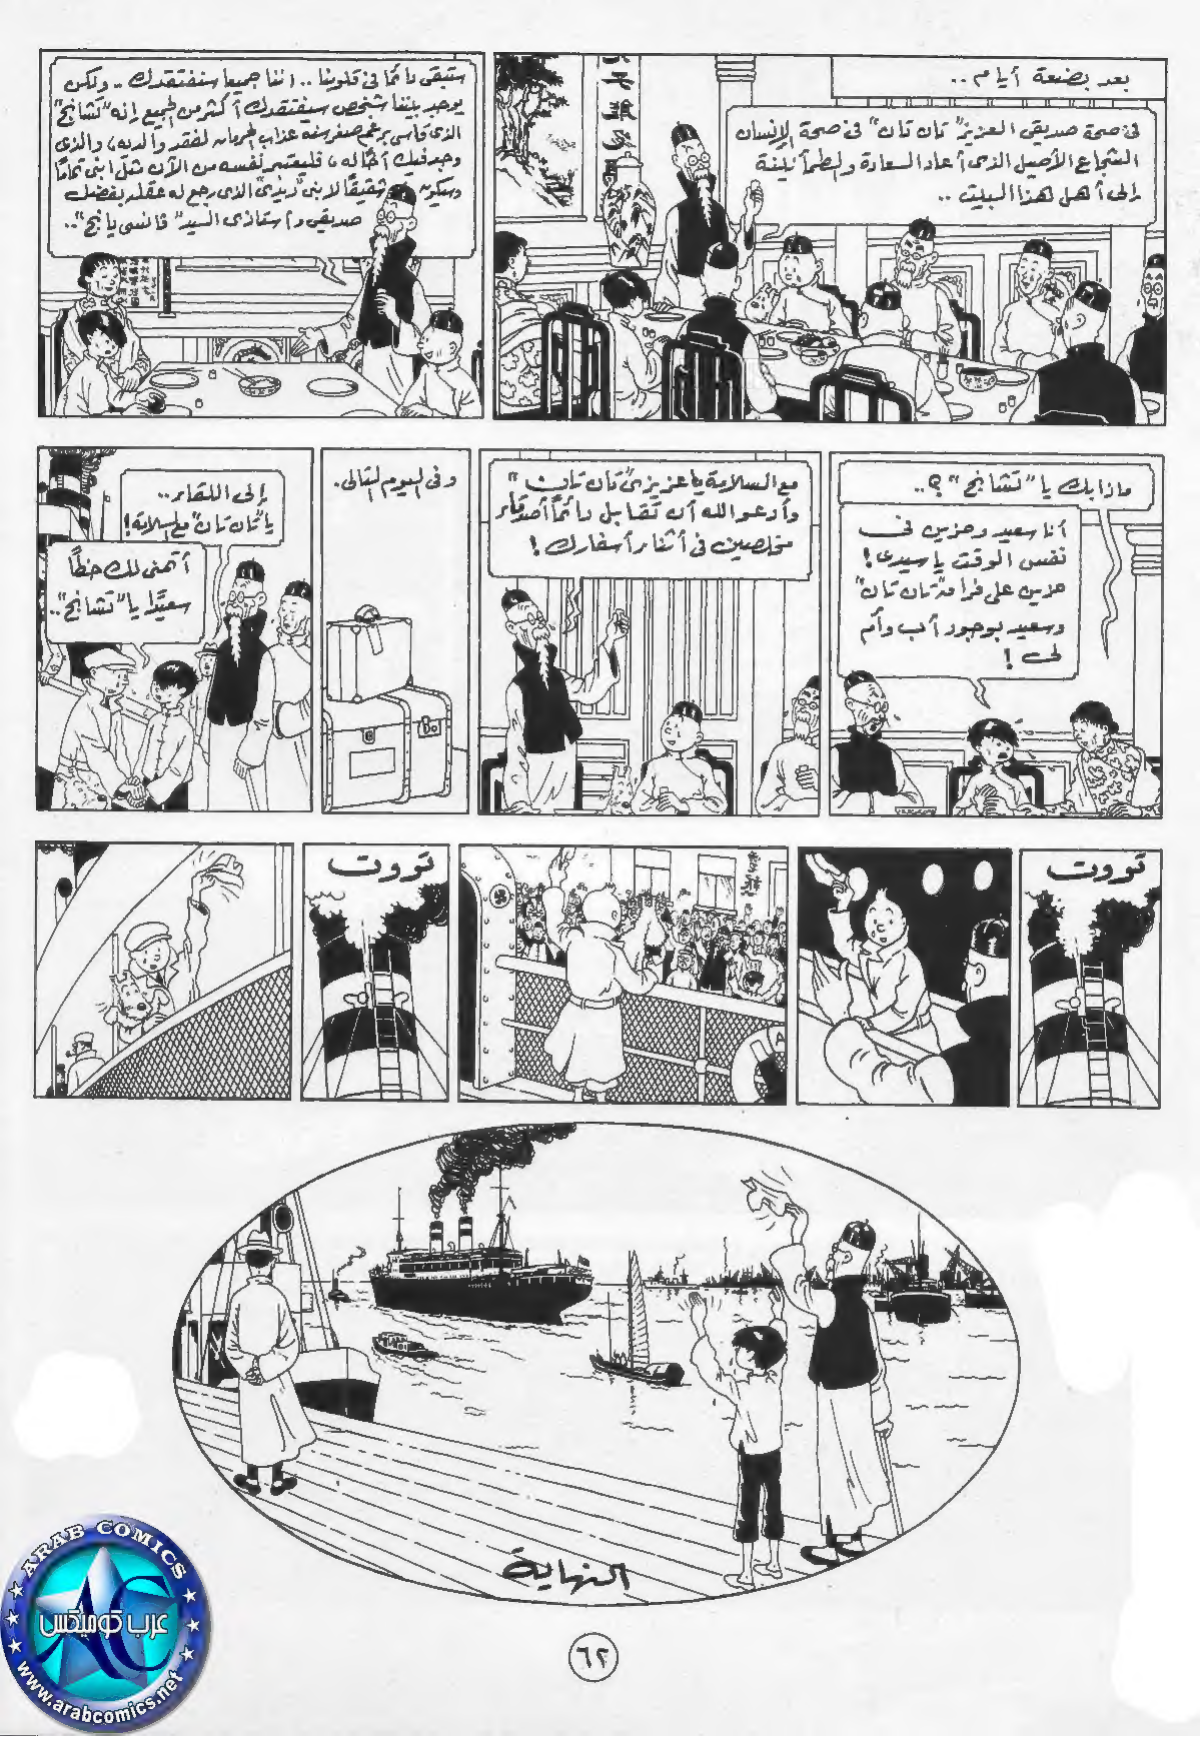 بعد بضعة أيام ..
فى صحة صديقى العزيز "تان تان" فى صحة الإنسان
الشجاع الأصيل الذى أعاد السعادة والطمأنينة
إلى أهل هذا البيت ..
ستبقى دائمًا فى قلوبنا .. إننا جميعا سنفتقدك .. ولكن
يوجد بيننا شخص سيفتقدك أكثر من الجميع إنه "تشانج"
الذى قاسى برغم صغر سنه عذاب الحرمان لفقد والديه، والذى
وجد فيك أخًا له، فليعتبر نفسه من الآن مثل ابنى تمامًا
وسيكون شقيقًا لابنى "ديدى" الذى رجع له عقله بفضل
صديقى وأستاذى السيد "فانسى يانج" ..
ماذا بك يا "تشانج" ؟ ..
أنا سعيد وحزين فى
نفس الوقت يا سيدى !
حزين على فراق "تان تان"
وسعيد بوجود أب وأم
لى !
مع السلامة يا عزيزى "تان تان"
وأدعو الله أن تقابل دائمًا أصدقاء
مخلصين فى أثناء أسفارك !
وفى اليوم التالى .
إلى اللقاء ..
يا "تان تان" مع السلامة !
أتمنى لك حظًا
سعيدًا يا "تشانج" ..
تووت
تووت
النهاية
٦٢
ARAB COMICS
عرب كوميكس
AC
www.arabcomics.net